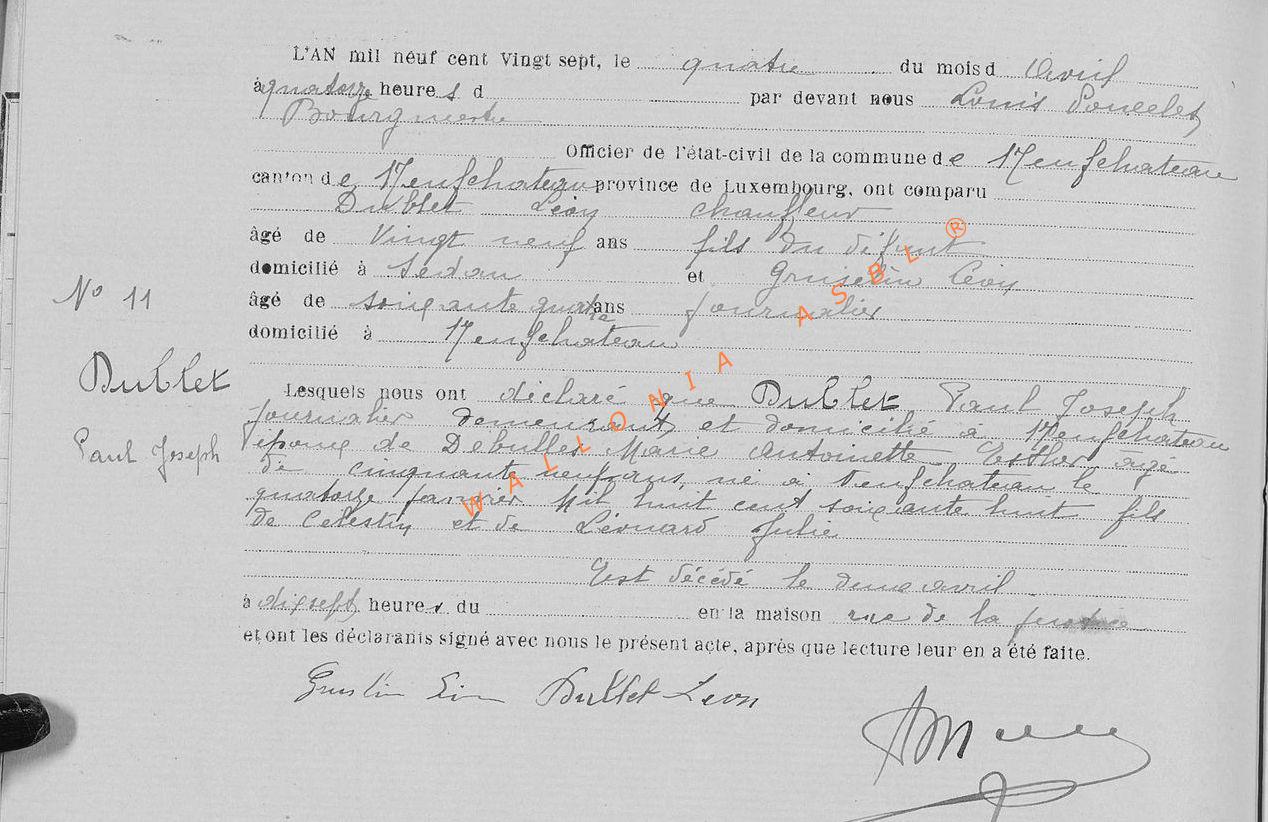 L'AN mil neuf cent Vingt sept, le quatre du mois d Avril
à quatorze heures d par devant nous Louis Poncelet
Bourgmestre
Officier de l'état-civil de la commune de Neufchateau
canton de Neufchateau province de Luxembourg, ont comparu
Dublet Léon chauffeur
âgé de Vingt neuf ans fils du défunt
domicilié à Sedan et Gruslin Léon
N° 11
âgé de soixante quatre ans journalier
domicilié à Neufchateau
Dublet
Lesquels nous ont déclaré que Dublet Paul Joseph
journalier demeurant et domicilié à Neufchateau
Paul Joseph
époux de Debulles Marie Antoinette Esther âgé
de cinquante neuf ans, né à Neufchateau le
quatorze janvier Mil huit cent soixante huit fils
de Celestin et de Léonard Julie
Est décédé le deux avril
à dix sept heures du en la maison rue de la
et ont les déclarants signé avec nous le présent acte, après que lecture leur en a été faite.
Dublet Leon
WALLONIA ASBL ®